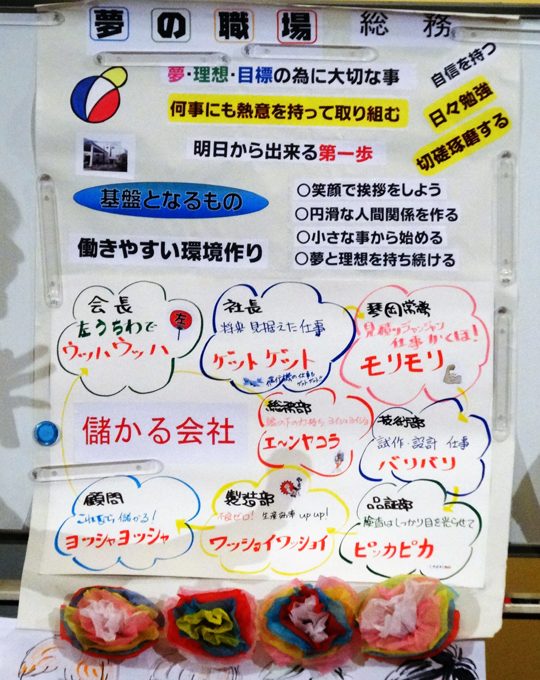 夢の職場 総務
自信を持つ
夢・理想・目標の為に大切な事
何事にも熱意を持って取り組む
日々勉強
切磋琢磨する
明日から出来る第一歩
基盤となるもの
働きやすい環境作り
○笑顔で挨拶をしよう
○円滑な人間関係を作る
○小さな事から始める
○夢と理想を持ち続ける
会長
左うちわで
ウッハウッハ
左
社長
将来見据えた仕事
ゲットゲット
常務
見積
仕事かくほ!
モリモリ
儲かる会社
総務部
エンヤコラ
技術部
試作・設計 仕事
バリバリ
顧問
儲かる!
ヨッシャヨッシャ
製造部
ゼロ! 生産効率 up up!
ワッショイワッショイ
品証部
検査はしっかり目を光らせて
ピッカピカ